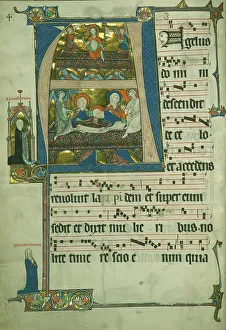 Agelus
do mi ni
descendit
de ce lo
et accedens
revolvit lapi dem et super eum
sedit et dixit mu li e ri bus no
lite time re scio e nim quia